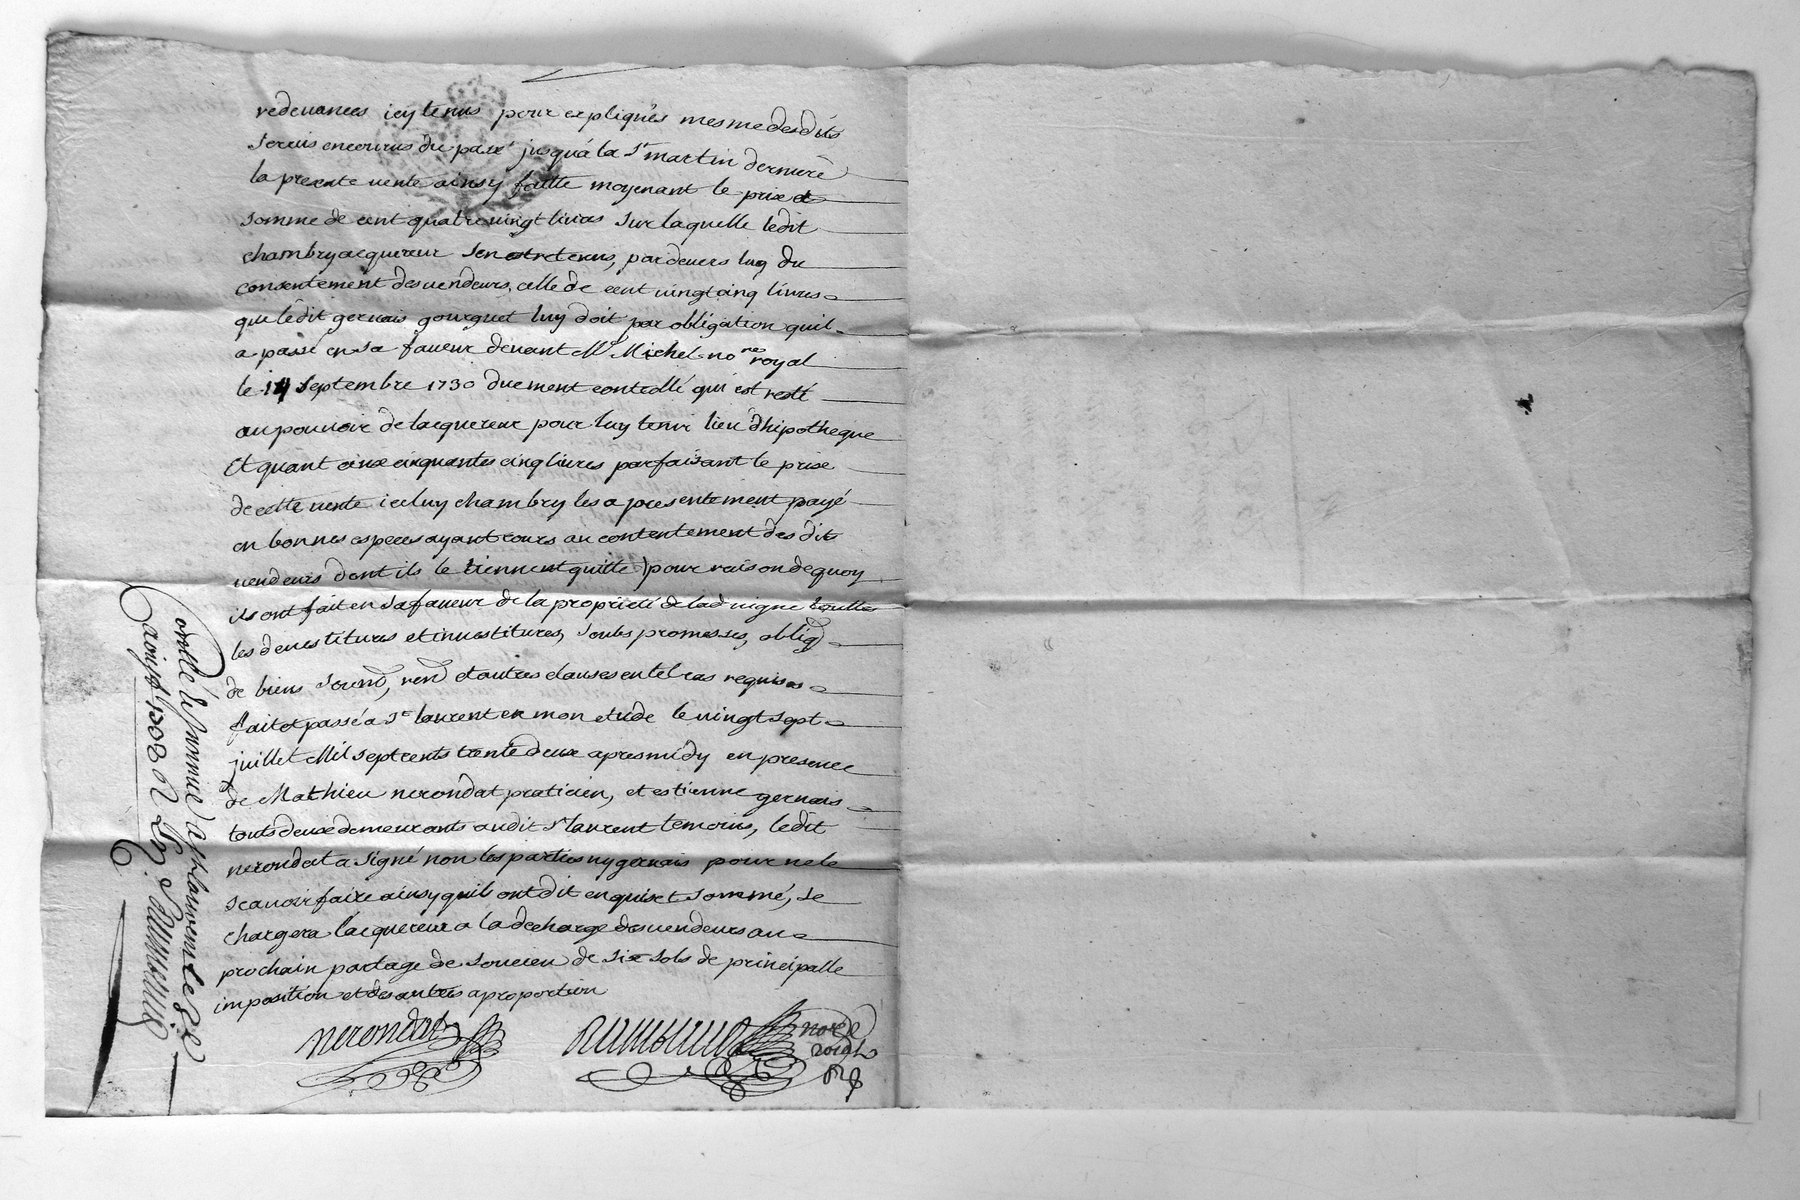 redevances icy tenus pour expliqués mesme desdits
servis encourus du passé jusqu'á la St martin derniere
la presente vente ainsy faitte moyenant le prix et
somme de cent quatre vingt livres sur laquelle ledit
chambry acquereur s'en est retenus, pardevers luy du
consentement des vendeurs, celle de cent vingt cinq livres
que ledit gervais gourguet luy doit par obligation quil
a passé en sa faveur devant Me Michel nore royal
le septembre 1730 duement controllé qui est resté
au pouvoir de lacquereur pour luy tenir lieu d'hipotheque
Et quant aux cinquantes cinq livres parfaisant le prix
de cette vente iceluy chambry les a presentement payé
en bonnes especes ayant cours au contentement des dits
vendeurs dont ils le tiennent quitte, pour raison de quoy
ils ont fait en sa faveur de la proprieté de lad vigne touttes
les devestitures et investitures, soubs promesses, oblig
de biens soum, ren et autres clauses en tel cas requises
fait et passé a St laurent en mon etude le vingt sept
juillet Mil sept cents trente deux apres midy en presence
de Mathieu nerondat praticien, et estienne gervais
touts deux demeurants audit St laurent temoins, ledit
nerondat a signé non les parties ny gervais pour ne le
scavoir faire ainsy quils ont dit enquis et sommé, se
chargera lacquereur a la decharge des vendeurs au
prochain partage de soucieu de six sols de principalle
imposition et des autres a proportion
nerondat
nore
roial